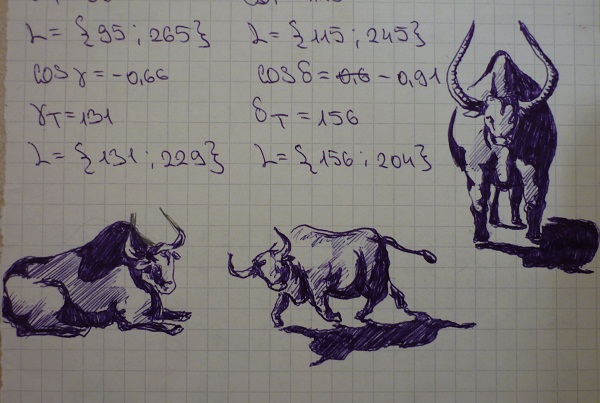 L = {95 ; 265} L = {115 ; 245}
cos γ = -0,66 cos δ = 0,6 - 0,91
γT = 131 δT = 156
L = {131 ; 229} L = {156 ; 204}